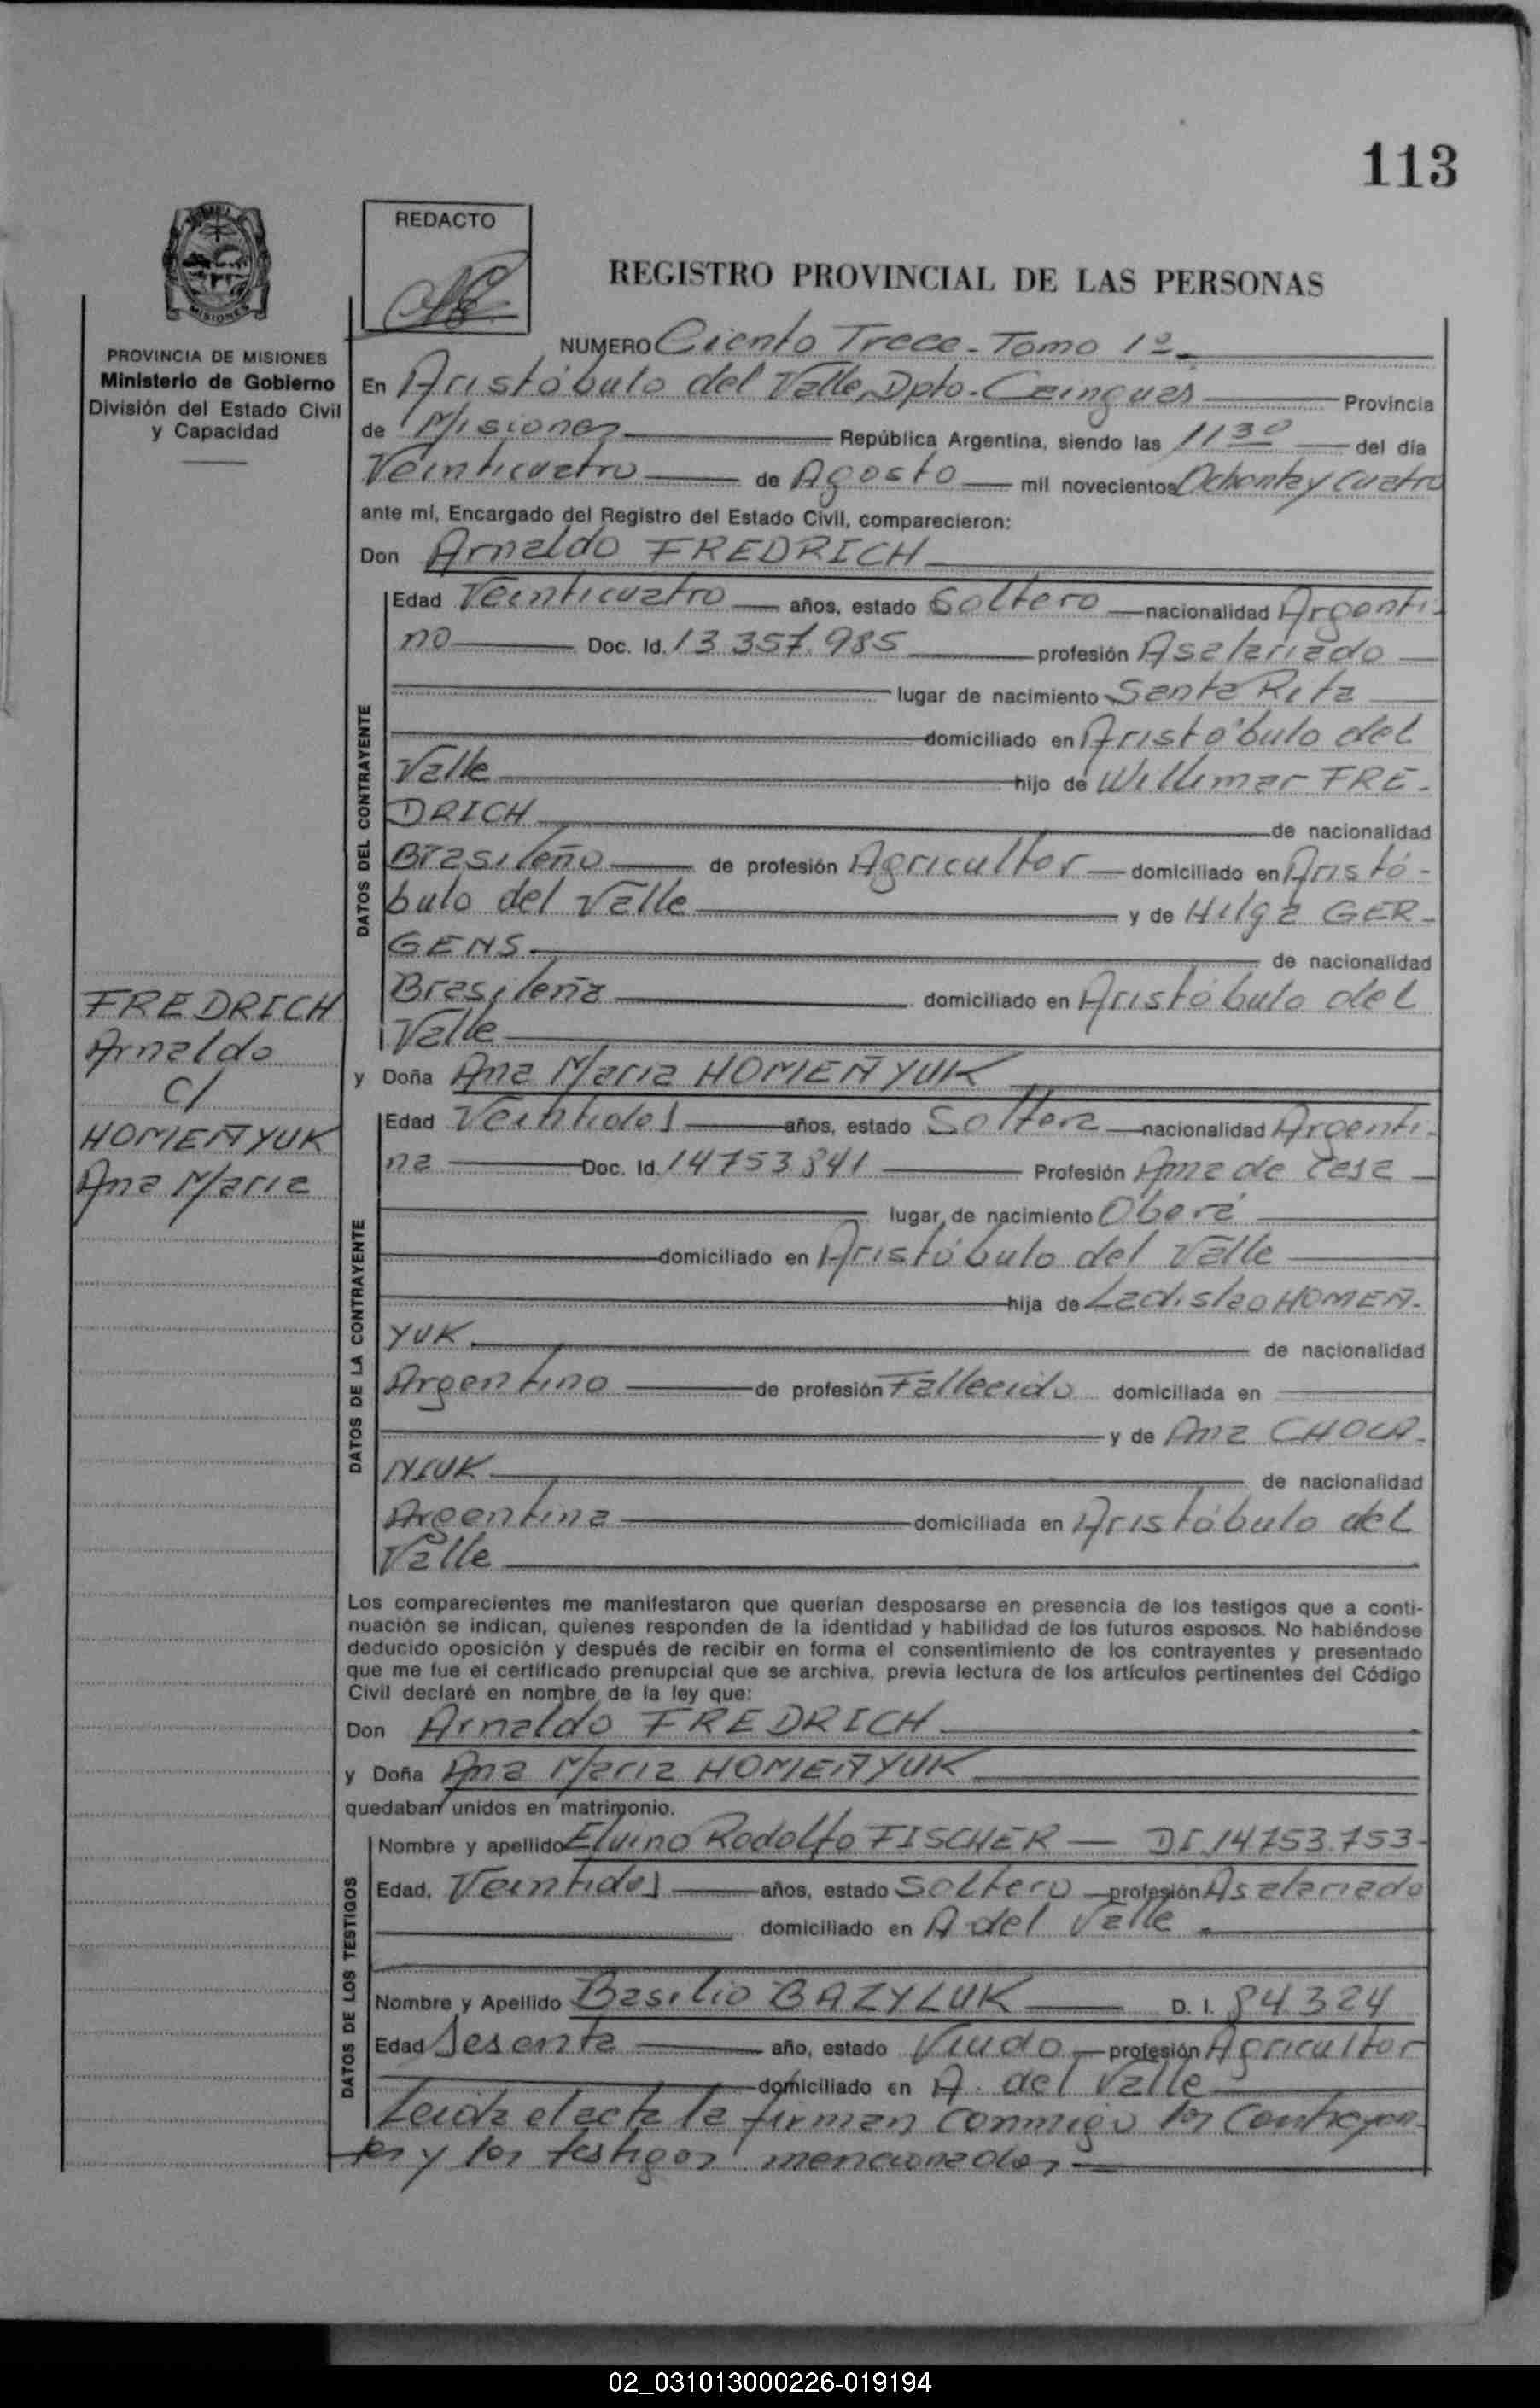 113
REDACTO
REGISTRO PROVINCIAL DE LAS PERSONAS
MISIONES
PROVINCIA DE MISIONES
Ministerio de Gobierno
División del Estado Civil
y Capacidad
FREDRICH
Arnaldo
c/
HOMEÑYUK
Ana Maria
NUMERO Ciento Trece - Tomo 1º
En Aristóbulo del Valle, Dpto. Cainguás Provincia
de Misiones República Argentina, siendo las 11 30 del día
Veinticuatro de Agosto mil novecientos Ochenta y cuatro
ante mí, Encargado del Registro del Estado Civil, comparecieron:
Don Arnaldo FREDRICH
DATOS DEL CONTRAYENTE
Edad Veinticuatro años, estado Soltero nacionalidad Argenti-
no Doc. Id. 13.357.985 profesión Asalariado
lugar de nacimiento Santa Rita
domiciliado en Aristóbulo del
Valle hijo de Willimar FRE-
DRICH de nacionalidad
Brasileño de profesión Agricultor domiciliado en Aristó-
bulo del Valle y de Hilga GER-
GENS de nacionalidad
Brasileña domiciliado en Aristóbulo del
Valle
y Doña Ana Maria HOMEÑYUK
DATOS DE LA CONTRAYENTE
Edad Veintidos años, estado Soltera nacionalidad Argenti-
na Doc. Id. 14753841 Profesión Ama de Casa
lugar de nacimiento Oberá
domiciliado en Aristóbulo del Valle
hija de Ladislao HOMEÑ-
YUK de nacionalidad
Argentino de profesión Fallecido domiciliada en
y de Ana CHOLA-
NIUK de nacionalidad
Argentina domiciliada en Aristóbulo del
Valle
Los comparecientes me manifestaron que querían desposarse en presencia de los testigos que a conti-
nuación se indican, quienes responden de la identidad y habilidad de los futuros esposos. No habiéndose
deducido oposición y después de recibir en forma el consentimiento de los contrayentes y presentado
que me fue el certificado prenupcial que se archiva, previa lectura de los artículos pertinentes del Código
Civil declaré en nombre de la ley que:
Don Arnaldo FREDRICH
y Doña Ana Maria HOMEÑYUK
quedaban unidos en matrimonio.
DATOS DE LOS TESTIGOS
Nombre y apellido Elvino Rodolfo FISCHER DI 14753.753
Edad, Veintidos años, estado Soltero profesión Asalariado
domiciliado en A del Valle
Nombre y Apellido Basilio BAZYLUK D. I. 84324
Edad Sesenta año, estado Viudo profesión Agricultor
domiciliado en A. del Valle
Leida el acta la firman conmigo los Contrayen-
tes y los testigos mencionados
02_031013000226-019194